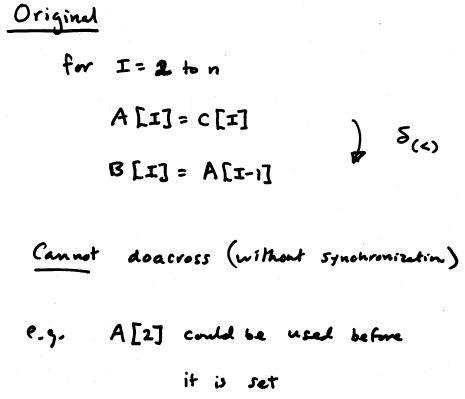 Original
for I = 2 to n
A[I] = C[I]
B[I] = A[I-1]
δ(<)
Cannot doacross (without synchronization)
e.g. A[2] could be used before
it is set